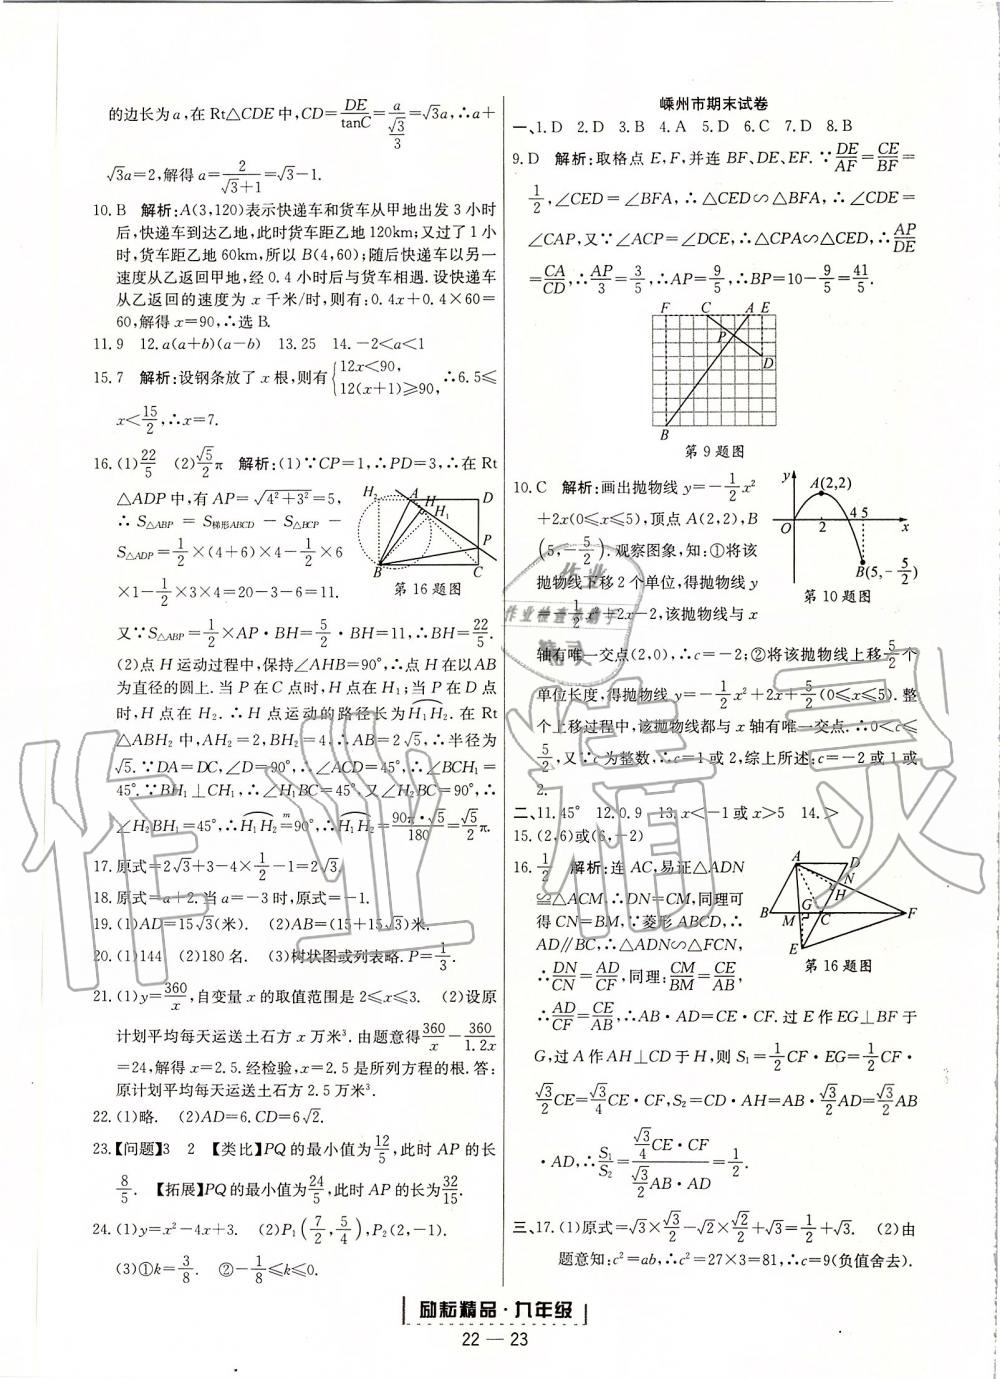 的边长为a,在Rt△CDE中,CD=DE/tanC=a/(√3/3)=√3a,∴a+
√3a=2,解得a=2/(√3+1)=√3-1.
10.B 解析:A(3,120)表示快递车和货车从甲地出发3小时
后,快递车到达乙地,此时货车距乙地120km;又过了1小
时,货车距乙地60km,所以B(4,60);随后快递车以另一
速度从乙返回甲地,经0.4小时后与货车相遇.设快递车
从乙返回的速度为x千米/时,则有:0.4x+0.4×60=
60,解得x=90,∴选B.
11.9 12.a(a+b)(a-b) 13.25 14.-2<a<1
15.7 解析:设钢条放了x根,则有{12x<90, 12(x+1)≥90, ∴6.5≤
x<15/2,∴x=7.
16.(1)22/5 (2)√5/2π 解析:(1)∵CP=1,∴PD=3,∴在Rt
△ADP中,有AP=√(4²+3²)=5,
∴S△ABP=S梯形ABCD-S△BCP-
S△ADP=1/2×(4+6)×4-1/2×6
×1-1/2×3×4=20-3-6=11.
H₂ A H H₁ D P B C
第16题图
又∵S△ABP=1/2×AP·BH=5/2·BH=11,∴BH=22/5.
(2)点H运动过程中,保持∠AHB=90°,∴点H在以AB
为直径的圆上.当P在C点时,H点在H₁,当P在D点
时,H点在H₂.∴H点运动的路径长为H₁H₂.在Rt
△ABH₂中,AH₂=2,BH₂=4,∴AB=2√5,∴半径为
√5.∵DA=DC,∠D=90°,∴∠ACD=45°,∴∠BCH₁=
45°.∵BH₁⊥CH₁,∴∠H₁BC=45°,又∠H₂BC=90°,∴
∠H₂BH₁=45°,∴H₁H₂ m=90°,∴H₁H₂=90π·√5/180=√5/2π.
17.原式=2√3+3-4×1/2-1=2√3.
18.原式=a+2.当a=-3时,原式=-1.
19.(1)AD=15√3(米). (2)AB=(15+15√3)米.
20.(1)144 (2)180名. (3)树状图或列表略.P=1/3.
21.(1)y=360/x,自变量x的取值范围是2≤x≤3. (2)设原
计划平均每天运送土石方x万米³.由题意得360/x-360/1.2x
=24,解得x=2.5.经检验,x=2.5是所列方程的根.答:
原计划平均每天运送土石方2.5万米³.
22.(1)略. (2)AD=6.CD=6√2.
23.【问题】3 2 【类比】PQ的最小值为12/5,此时AP的长
8/5. 【拓展】PQ的最小值为24/5,此时AP的长为32/15.
24.(1)y=x²-4x+3. (2)P₁(7/2,5/4),P₂(2,-1).
(3)①k=3/8. ②-1/8≤k≤0.
嵊州市期末试卷
一、1.D 2.D 3.B 4.A 5.D 6.C 7.D 8.B
9.D 解析:取格点E,F,并连BF、DE、EF.∵DE/AF=CE/BF=
1/2,∠CED=∠BFA,∴△CED∽△BFA,∴∠CDE=
∠CAP,又∵∠ACP=∠DCE,∴△CPA∽△CED,∴AP/DE
=CA/CD,∴AP/3=3/5,∴AP=9/5,∴BP=10-9/5=41/5.
F C A E P D B
第9题图
10.C 解析:画出抛物线y=-1/2x²
+2x(0≤x≤5),顶点A(2,2),B
(5,-5/2).观察图象,知:①将该
抛物线下移2个单位,得抛物线y
=-1/2x²+2x-2,该抛物线与x
y A(2,2) O 2 4 5 x B(5,-5/2)
第10题图
轴有唯一交点(2,0),∴c=-2;②将该抛物线上移5/2个
单位长度,得抛物线y=-1/2x²+2x+5/2(0≤x≤5).整
个上移过程中,该抛物线都与x轴有唯一交点.∴0<c≤
5/2,又∵c为整数,∴c=1或2,综上所述:c=-2或1或
2.
二、11.45° 12.0.9 13.x<-1或x>5 14.>
15.(2,6)或(6,-2)
16.1/2 解析:连AC,易证△ADN
≌△ACM.∴DN=CM,同理可
得CN=BM,∵菱形ABCD,∴
AD∥BC,∴△ADN∽△FCN,
∴DN/CN=AD/CF,同理:CM/BM=CE/AB,
A D N H G B M C F E
第16题图
∴AD/CF=CE/AB,∴AB·AD=CE·CF.过E作EG⊥BF于
G,过A作AH⊥CD于H,则S₁=1/2CF·EG=1/2CF·
√3/2CE=√3/4CE·CF,S₂=CD·AH=AB·√3/2AD=√3/2AB
·AD,∴S₁/S₂=(√3/4CE·CF)/(√3/2AB·AD)=1/2.
三、17.(1)原式=√3×√3/2-√2×√2/2+√3=1/2+√3. (2)由
题意知:c²=ab,∴c²=27×3=81,∴c=9(负值舍去).
励耘精品·九年级
22 — 23
作业精灵
作业
作业检查
精灵